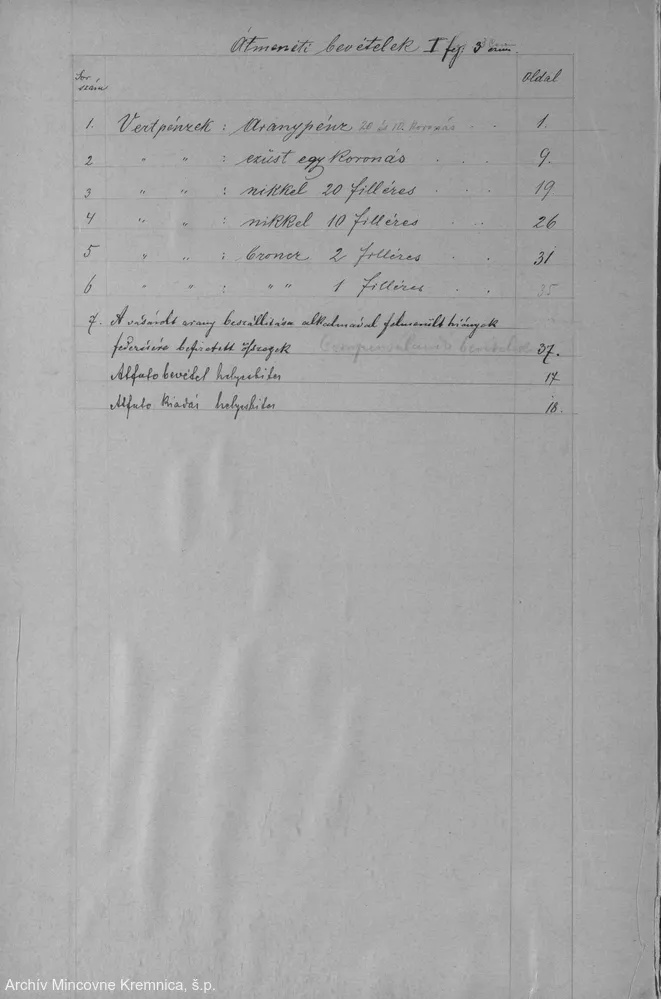 Átmeneti bevételek I fej. 3 cím.
Sor szám
oldal
1. Vertpénzek : Aranypénz 20 és 10. koronás . . 1.
2 " " : ezüst egy koronás . . . 9.
3 " " : nikkel 20 filléres . . . 19
4 " " : nikkel 10 filléres . . . 26
5 " " : bronz 2 filléres . . . 31
6 " " : " " 1 filléres . . . 35
7. A vásárolt arany beszállítása alkalmával felmerült hiányok
fedezésére befizetett összegek 37.
Átfutó bevétel helyesbítés 17
Átfutó kiadás helyesbítés 18.
Archív Mincovne Kremnica, š.p.